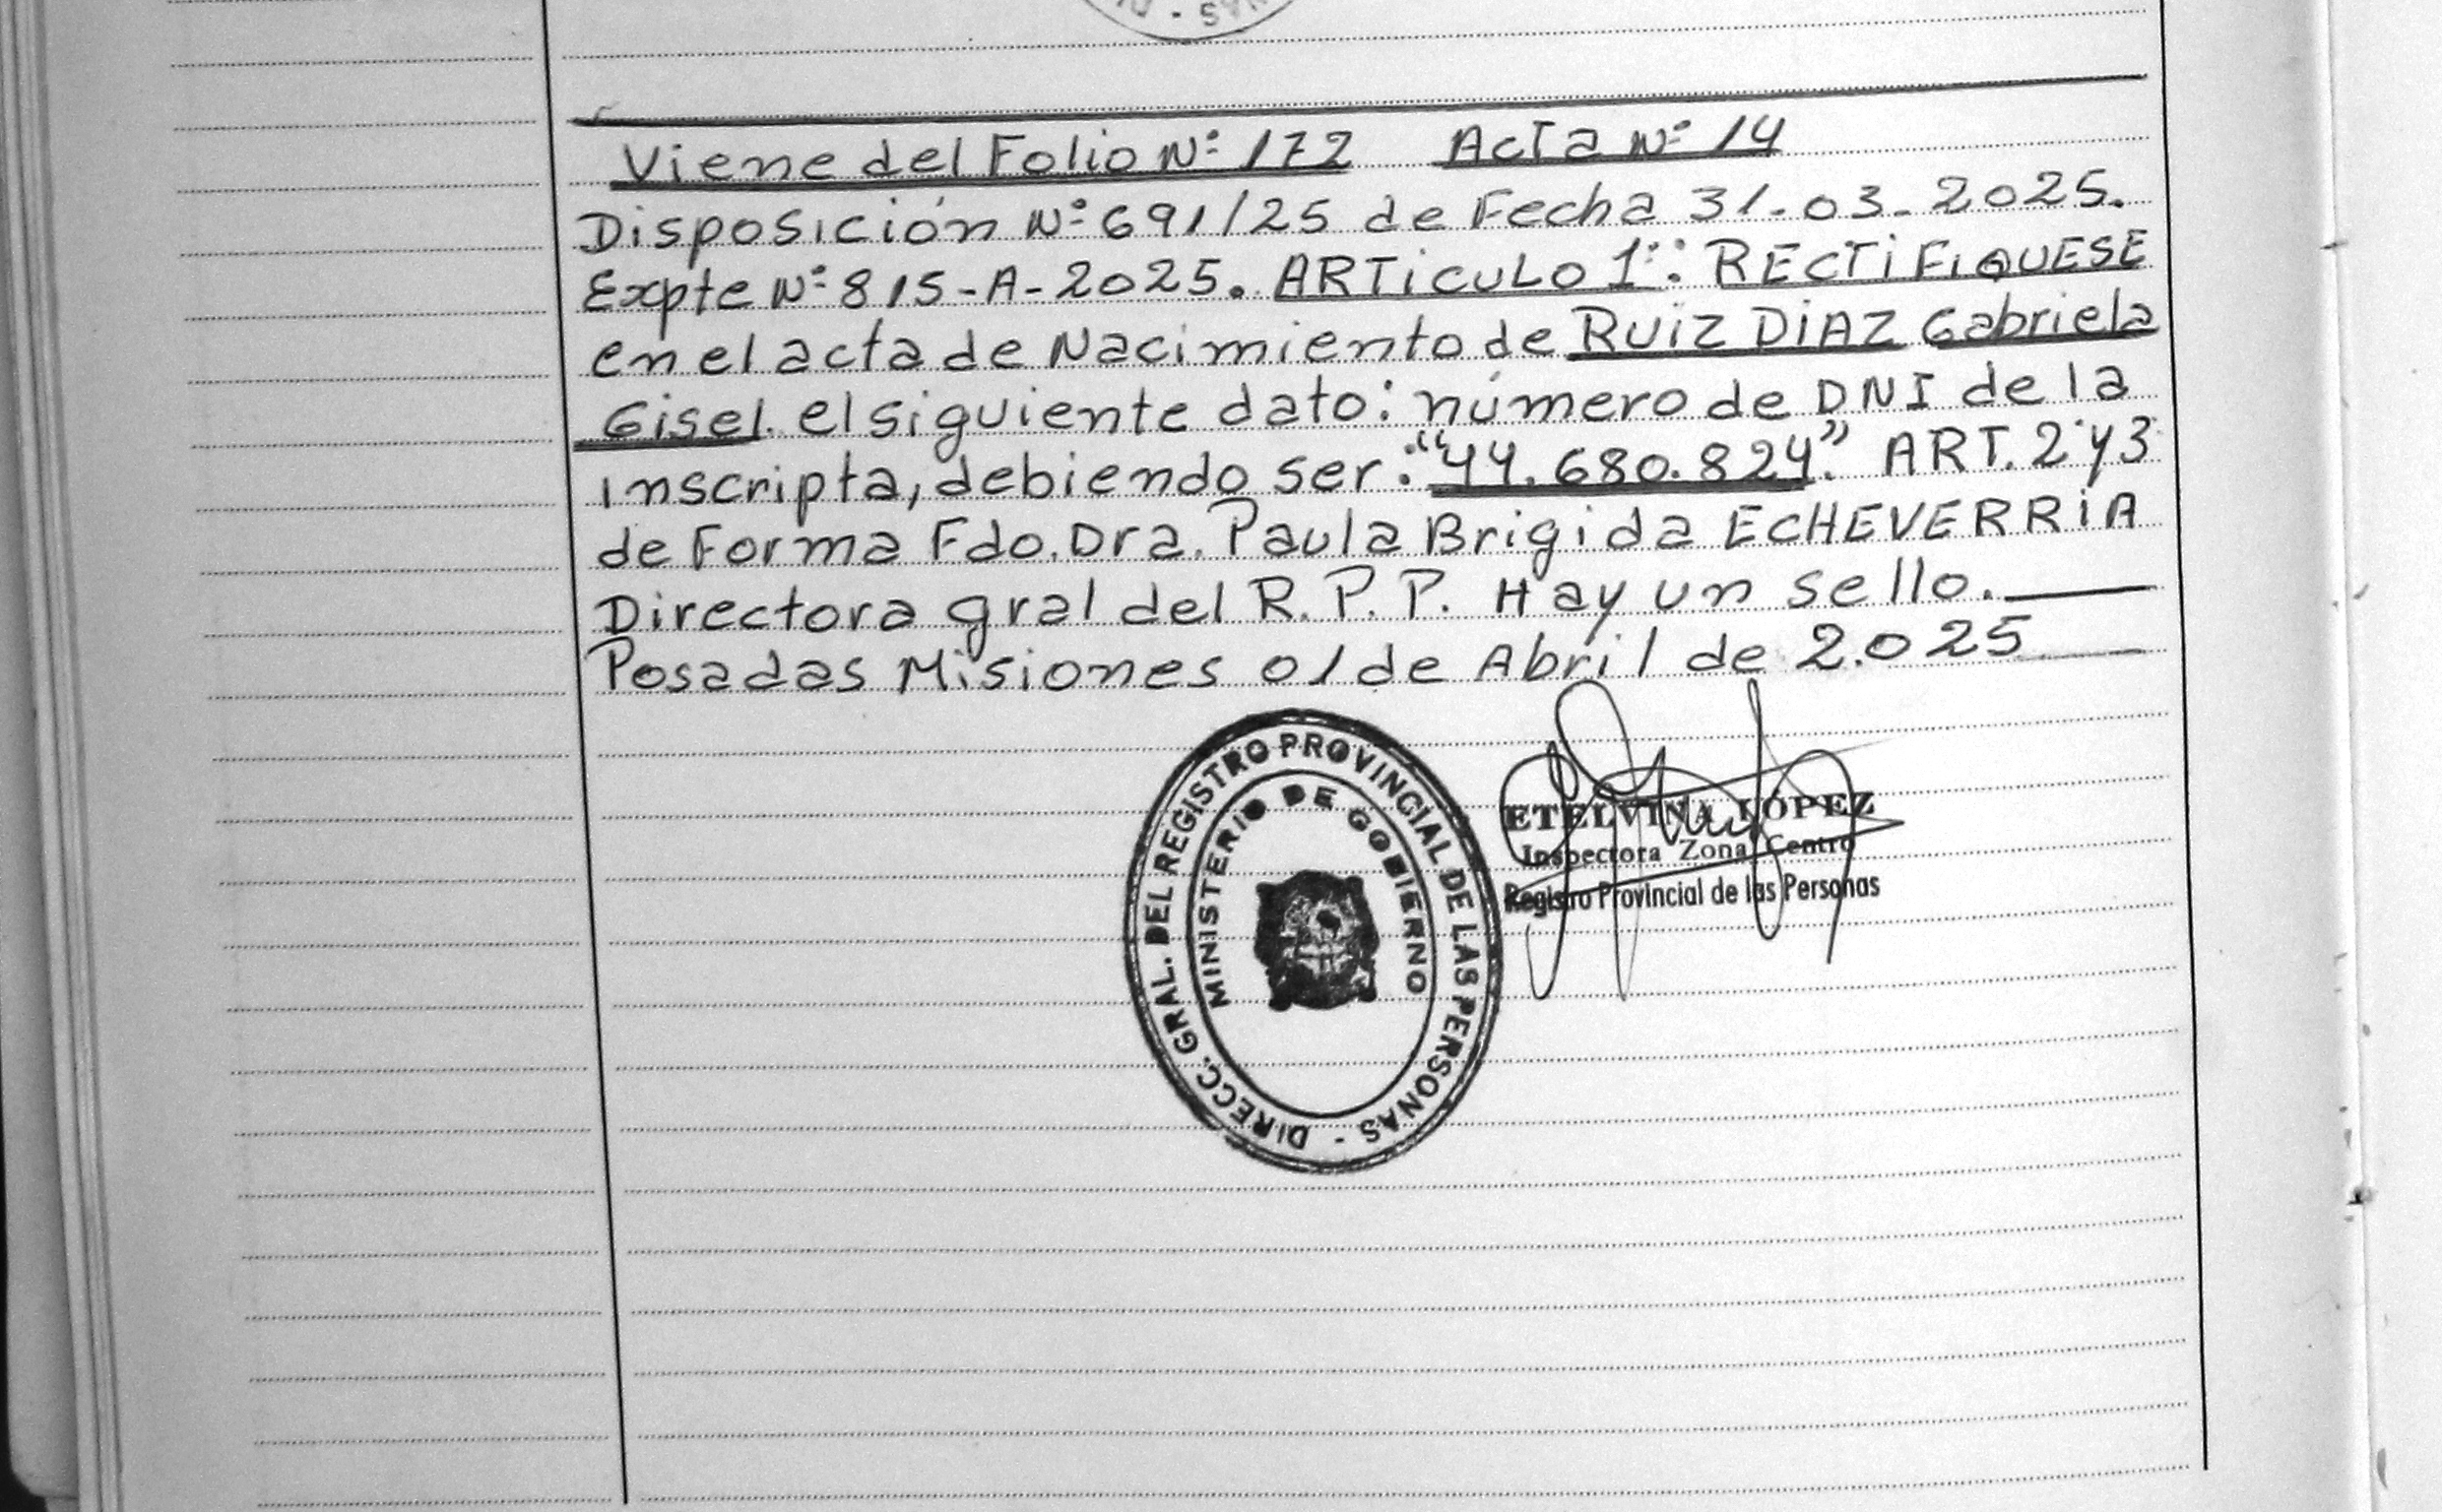 Viene del Folio Nº 172 Acta Nº 14
Disposición Nº 691/25 de Fecha 31-03-2025.
Expte Nº 815-A-2025. ARTiCULO 1º: RECTiFiQUESE
en el acta de Nacimiento de RUiZ DiAZ Gabriela
Gisel. el siguiente dato: número de DNI de la
inscripta, debiendo ser: "44.680.824". ART. 2 y 3
de Forma Fdo. Dra. Paula Brigida ECHEVERRiA
Directora gral del R.P.P. Hay un sello.
Posadas Misiones 01 de Abril de 2.025
DIRECC. GRAL. DEL REGISTRO PROVINCIAL DE LAS PERSONAS -
MINISTERIO DE GOBIERNO
ETELVINA LOPEZ
Inspectora Zona Centro
Registro Provincial de las Personas